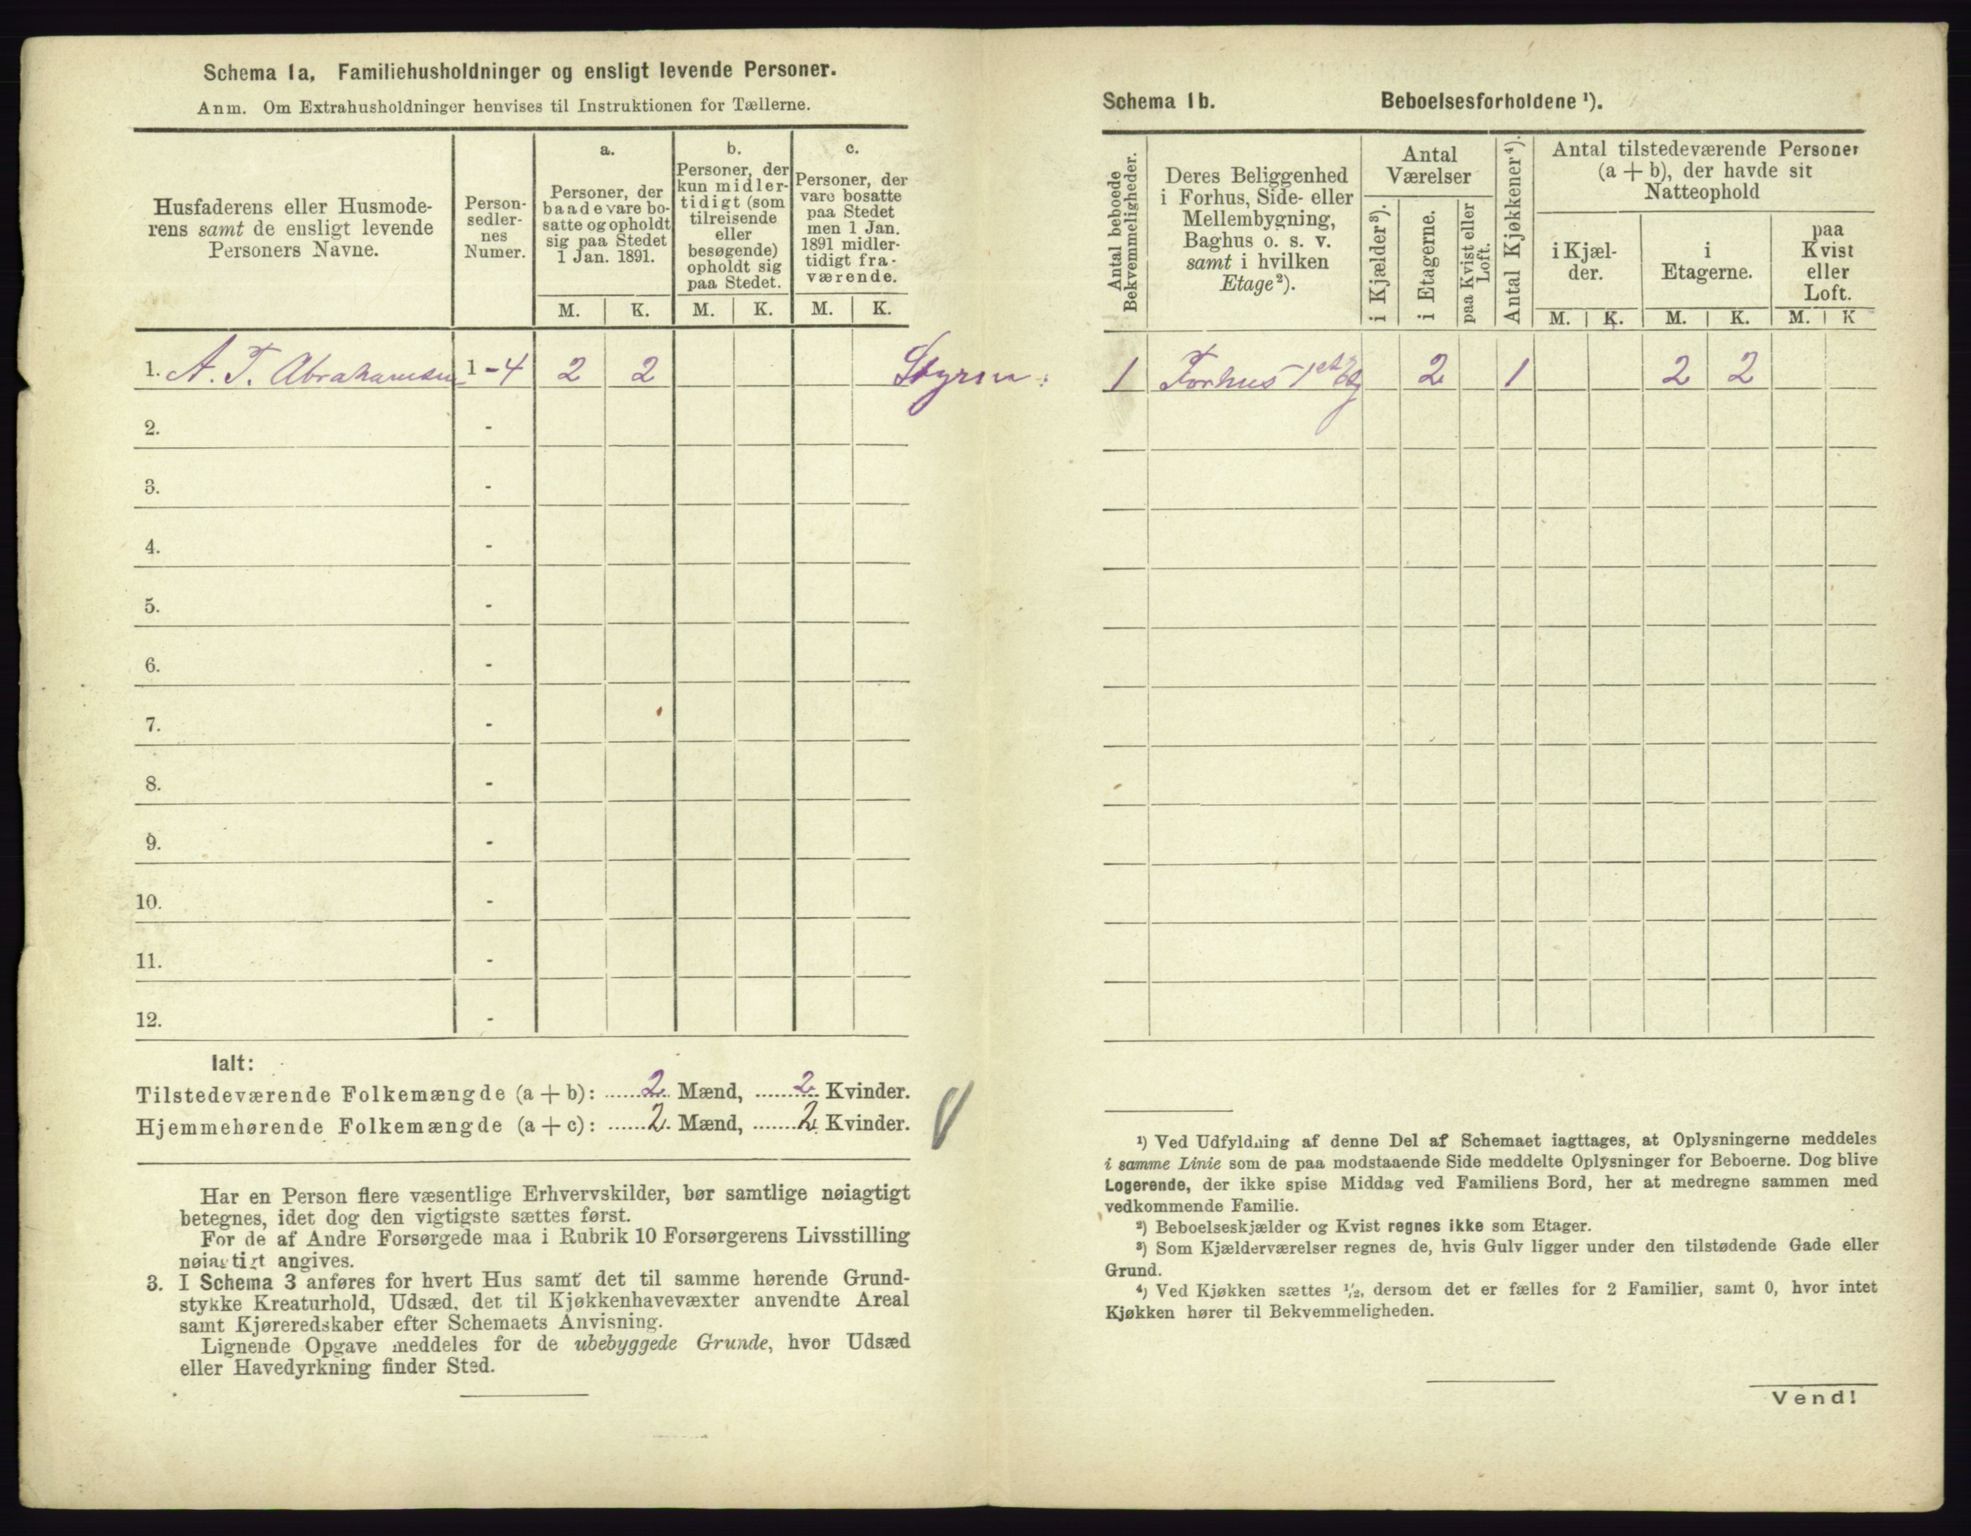 Schema 1a, Familiehusholdninger og ensligt levende Personer.
Anm. Om Extrahusholdninger henvises til Instruktionen for Tællerne.
Husfaderens eller Husmode-
rens samt de ensligt levende
Personers Navne.
Person-
sedler-
nes
Numer.
a.
Personer, der
baade vare bo-
satte og opholdt
sig paa Stedet
1 Jan. 1891.
b.
Personer, der
kun midler-
tidigt (som
tilreisende
eller
besøgende)
opholdt sig
paa Stedet.
c.
Personer, der
vare bosatte
paa Stedet
men 1 Jan.
1891 midler-
tidigt fra-
værende.
M. K. M. K. M. K.
1. A. T. Abrahamsen 1 - 4 2 2
2. -
3. -
4. -
5. -
6. -
7. -
8. -
9. -
10. -
11. -
12. -
Ialt:
Tilstedeværende Folkemængde (a + b): 2 Mænd, 2 Kvinder.
Hjemmehørende Folkemængde (a + c): 2 Mænd, 2 Kvinder.
Har en Person flere væsentlige Erhvervskilder, bør samtlige nøiagtigt
betegnes, idet dog den vigtigste sættes først.
For de af Andre Forsørgede maa i Rubrik 10 Forsørgerens Livsstilling
nøiagtigt angives.
3. I Schema 3 anføres for hvert Hus samt det til samme hørende Grund-
stykke Kreaturhold, Udsæd, det til Kjøkkenhavevæxter anvendte Areal
samt Kjøreredskaber efter Schemaets Anvisning.
Lignende Opgave meddeles for de ubebyggede Grunde, hvor Udsæd
eller Havedyrkning finder Sted.
Schema 1b. Beboelsesforholdene ¹).
Antal beboede
Bekvemmeligheder.
Deres Beliggenhed
i Forhus, Side- eller
Mellembygning,
Baghus o. s. v.
samt i hvilken
Etage ²).
Antal
Værelser
i Kjælder ³).
i Etagerne.
paa Kvist eller
Loft.
Antal Kjøkkener ⁴).
Antal tilstedeværende Personer
(a + b), der havde sit
Natteophold
i Kjæl-
der.
i
Etagerne.
paa
Kvist
eller
Loft.
M. K. M. K. M. K
1 Forhus 1 2 1 2 2
¹) Ved Udfyldning af denne Del af Schemaet iagttages, at Oplysningerne meddeles
i samme Linie som de paa modstaaende Side meddelte Oplysninger for Beboerne. Dog blive
Logerende, der ikke spise Middag ved Familiens Bord, her at medregne sammen med
vedkommende Familie.
²) Beboelseskjælder og Kvist regnes ikke som Etager.
³) Som Kjælderværelser regnes de, hvis Gulv ligger under den tilstødende Gade eller
Grund.
⁴) Ved Kjøkken sættes ¹/₂, dersom det er fælles for 2 Familier, samt 0, hvor intet
Kjøkken hører til Bekvemmeligheden.
Vend!